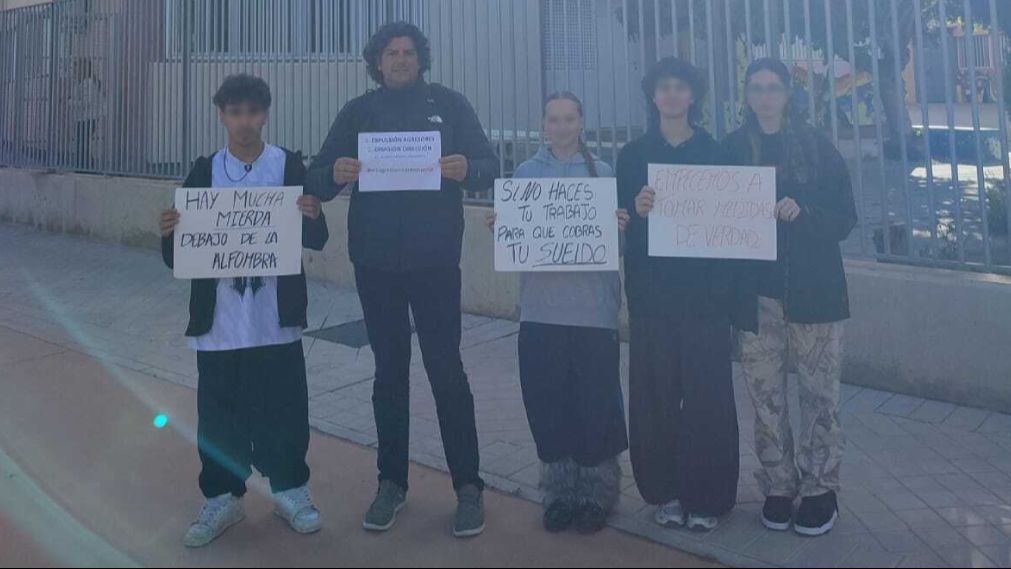 HAY MUCHA
MIERDA
DEBAJO DE LA
ALFOMBRA
1. EXPULSIÓN AGRESORES
2. DIMISIÓN DIRECCIÓN
SI NO HACES
TU TRABAJO
PARA QUE COBRAS
TU SUELDO
EMPECEMOS A
TOMAR MEDIDAS
DE VERDAD